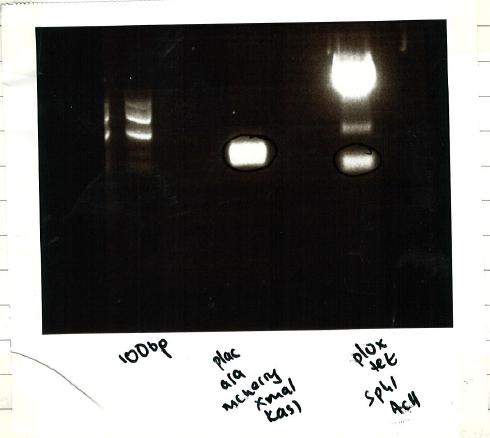 100bp
plac
ara
mcherry
xmaI
KasI
plux
tet
SphI
AclI